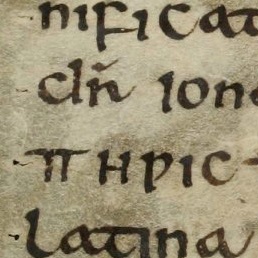 nificat
clñ ion
·π HPIC
latina